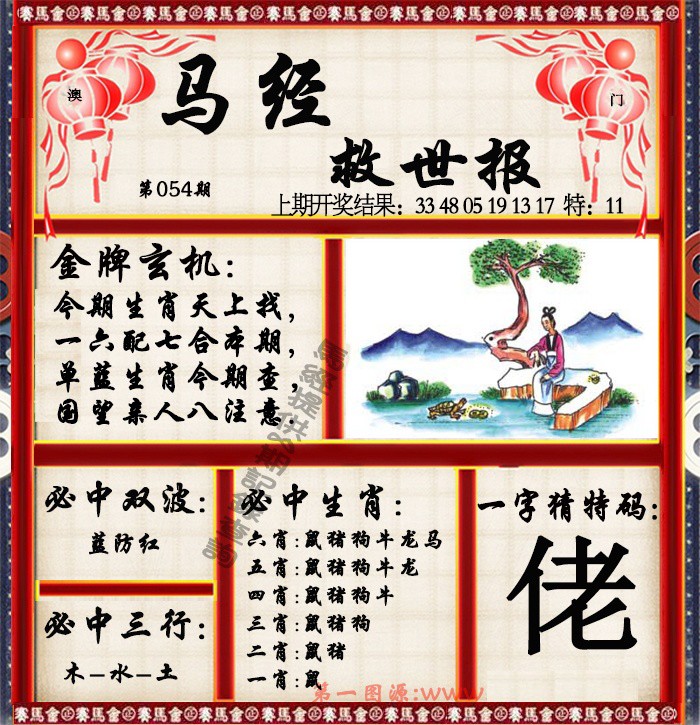 賽馬會正賽馬會正賽馬會正賽馬會正賽馬會正賽馬會正賽馬會
澳
门
马经
救世报
第054期
上期开奖结果：33 48 05 19 13 17 特：11
金牌玄机：
今期生肖天上找，
一六配七合本期，
单蓝生肖今期查，
国望亲人八注意．
必中双波：
蓝防红
必中三行：
木－水－土
必中生肖：
六肖：鼠猪狗牛龙马
五肖：鼠猪狗牛龙
四肖：鼠猪狗牛
三肖：鼠猪狗
二肖：鼠猪
一肖：鼠
一字猜特码：
佬
第一图源：www